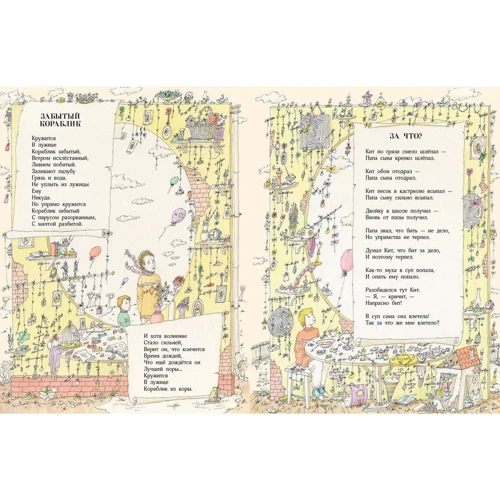 ЗАБЫТЫЙ
КОРАБЛИК
Кружится
В лужице
Кораблик забытый,
Ветром исхлёстанный,
Ливнем побитый.
Заливают палубу
Грязь и вода.
Не уплыть из лужицы
Ему
Никуда.
Но упрямо кружится
Кораблик забытый
С парусом разорванным,
С мачтой разбитой.
И хотя волнение
Стало сильней,
Верит он, что кончится
Время дождей,
Что ещё дождётся он
Лучшей поры...
Кружится
В лужице
Кораблик из коры.
ЗА ЧТО?
Кит по грязи смело шлёпал —
Папа сына крепко шлёпал.
Кит обои отодрал —
Папа сына отодрал.
Кит песок в кастрюлю всыпал —
Папа сыну сильно всыпал.
Двойку в школе получил —
Вновь от папы получил.
Папа знал, что бить — не дело,
Но упрямства не терпел.
Думал Кит, что бит за дело,
И поэтому терпел.
Как-то муха в суп попала,
И опять ему попало.
Разобиделся тут Кит.
— Я, — кричит, —
Напрасно бит!
В суп сама она влетела!
Так за что же мне влетело?